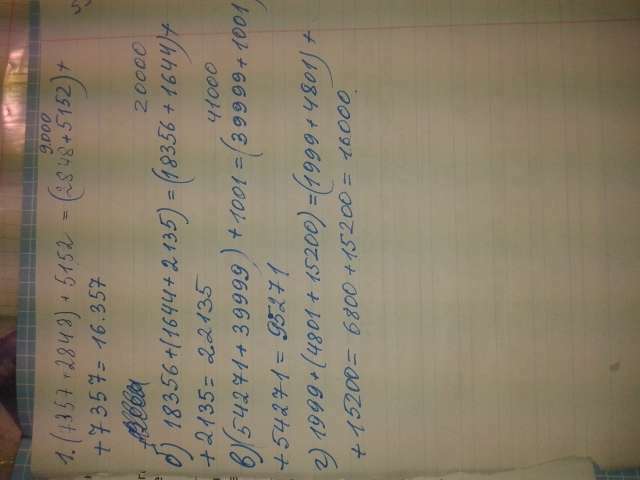 9000
1. (7357 + 2848) + 5152 = (2848 + 5152) +
+ 7357 = 16.357
20000
б) 18356 + (1644 + 2135) = (18356 + 1644) +
+ 2135 = 22135
41000
в) (54271 + 39999) + 1001 = (39999 + 1001)
+ 54271 = 95271
г) 1999 + (4801 + 15200) = (1999 + 4801) +
+ 15200 = 6800 + 15200 = 16000.